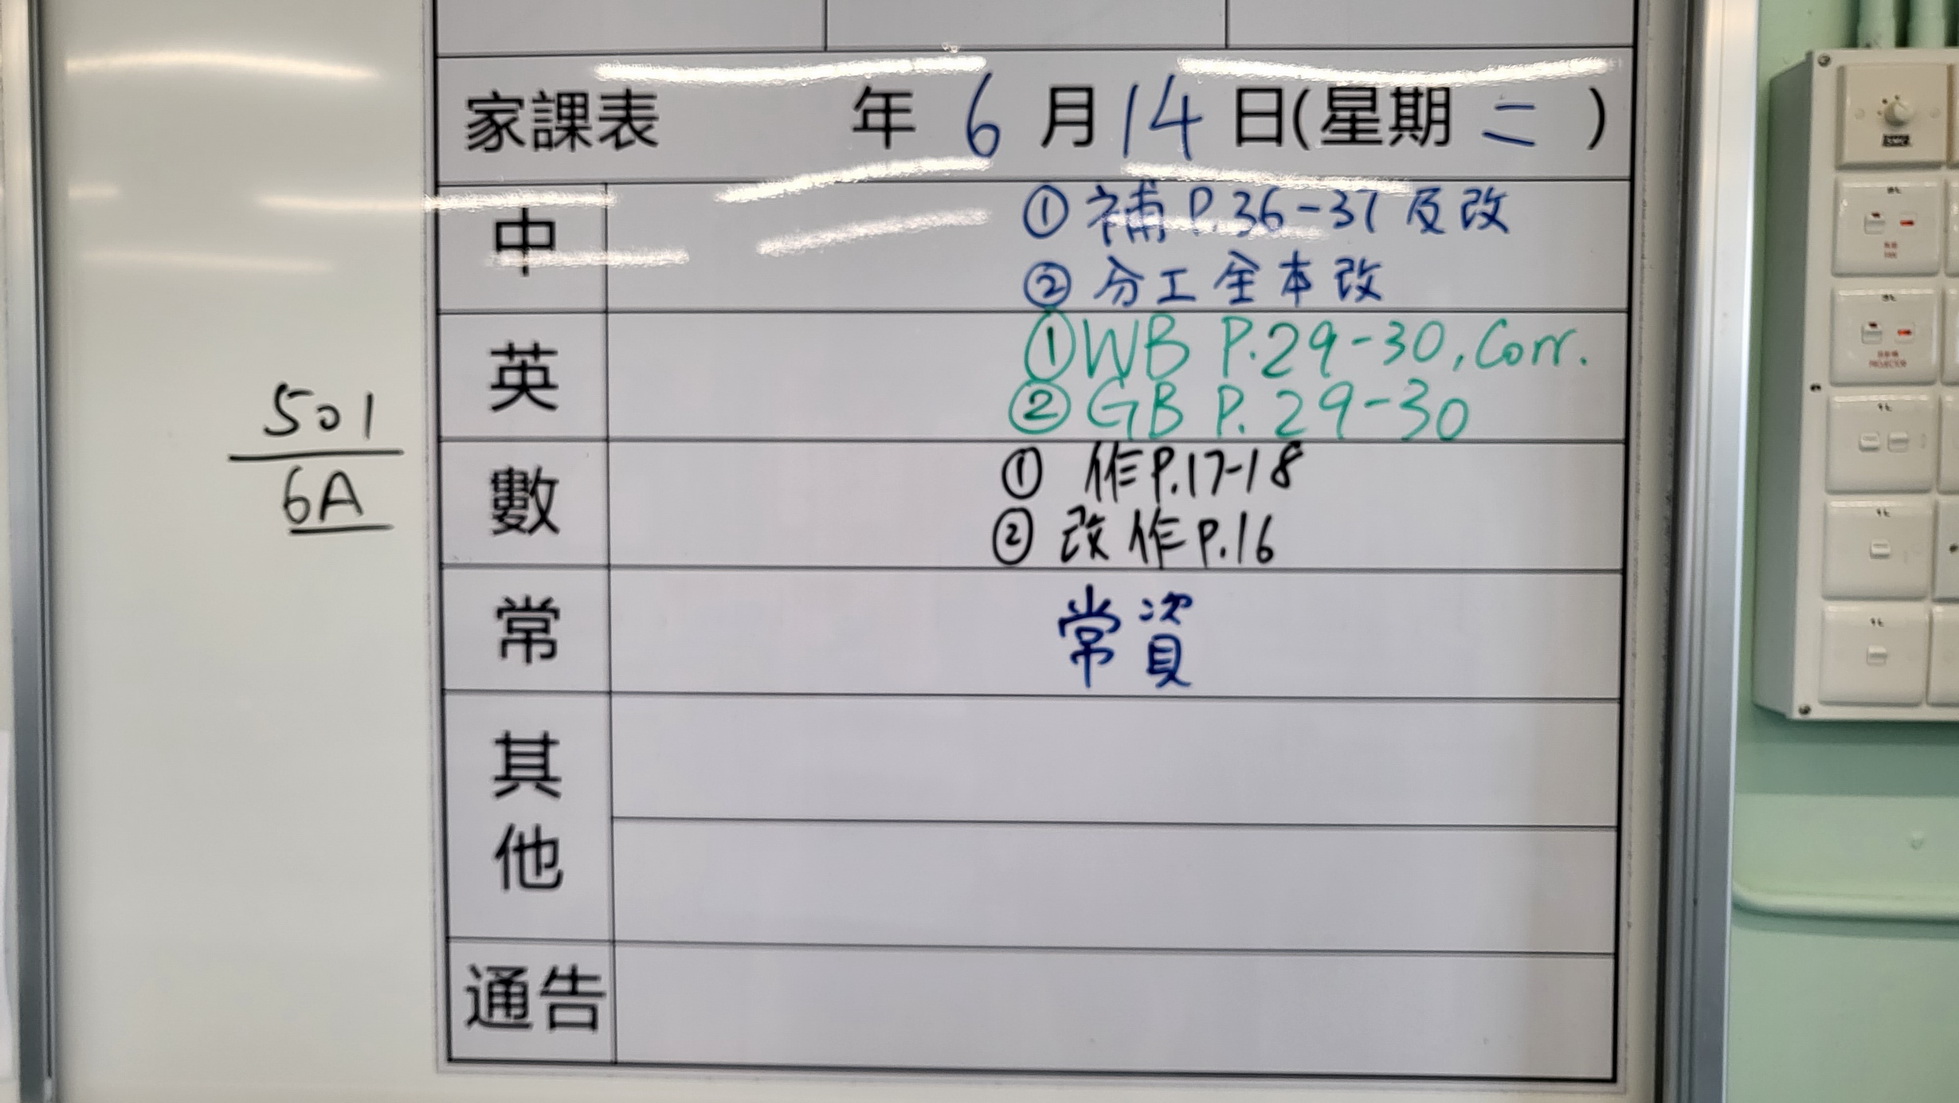 家課表 年 6 月 14 日(星期 二 )
中
① 補 P.36-37 及改
② 分工全本改
英
① WB P.29-30, Corr.
② GB P.29-30
數
① 作P.17-18
② 改作P.16
常
常資
其他
通告
501
6A
PROJECTOR